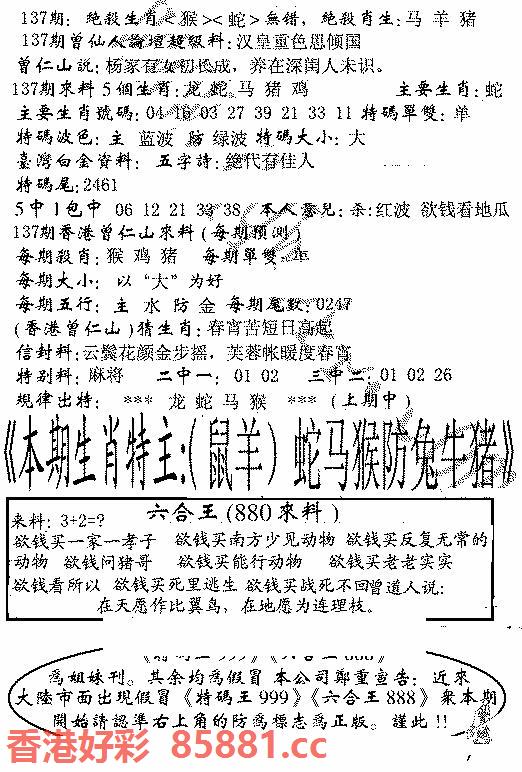 137期: 絶殺生肖<猴><蛇>無錯, 絶殺肖生: 马 羊 猪
137期曾仙人論壇超級料: 汉皇重色思倾国
曾仁山説: 杨家有女初长成, 养在深闺人未识。
137期來料5個生肖: 龙 蛇 马 猪 鸡 主要生肖: 蛇
主要生肖號碼: 04 16 03 27 39 21 33 11 特碼單雙: 单
特碼波色: 主 蓝波 防 绿波 特碼大小: 大
臺灣白金資料: 五字詩: 絶代有佳人
特碼尾: 2461
5中1包中 06 12 21 33 38 本人意見: 杀: 红波 欲钱看地瓜
137期香港曾仁山來料(每期預測)
每期殺肖: 猴 鸡 猪 每期單雙: 单
每期大小: 以“大”为好
每期五行: 主 水 防 金 每期尾数: 0247
(香港曾仁山)猜生肖: 春宵苦短日高起
信封料: 云鬓花颜金步摇, 芙蓉帐暖度春宵
特别料: 麻将 二中一: 01 02 三中二: 01 02 26
規律出特: *** 龙 蛇 马 猴 *** (上期中)
《本期生肖特主:(鼠羊) 蛇马猴防兔牛猪》
六合王(880來料)
來料: 3+2=?
欲钱买一家一孝子 欲钱买南方少见动物 欲钱买反复无常的
动物 欲钱问猪哥 欲钱买能行动物 欲钱买老老实实
欲钱看所以 欲钱买死里逃生 欲钱买战死不回曾道人说:
在天愿作比翼鸟, 在地愿为连理枝。
爲姐妹刊。其余均爲假冒 本公司鄭重宣告: 近來
大陸市面出現假冒《特碼王999》《六合王888》衆本期
開始請認準右上角的防爲標志爲正版。謹此!!
香港好彩 85881.cc